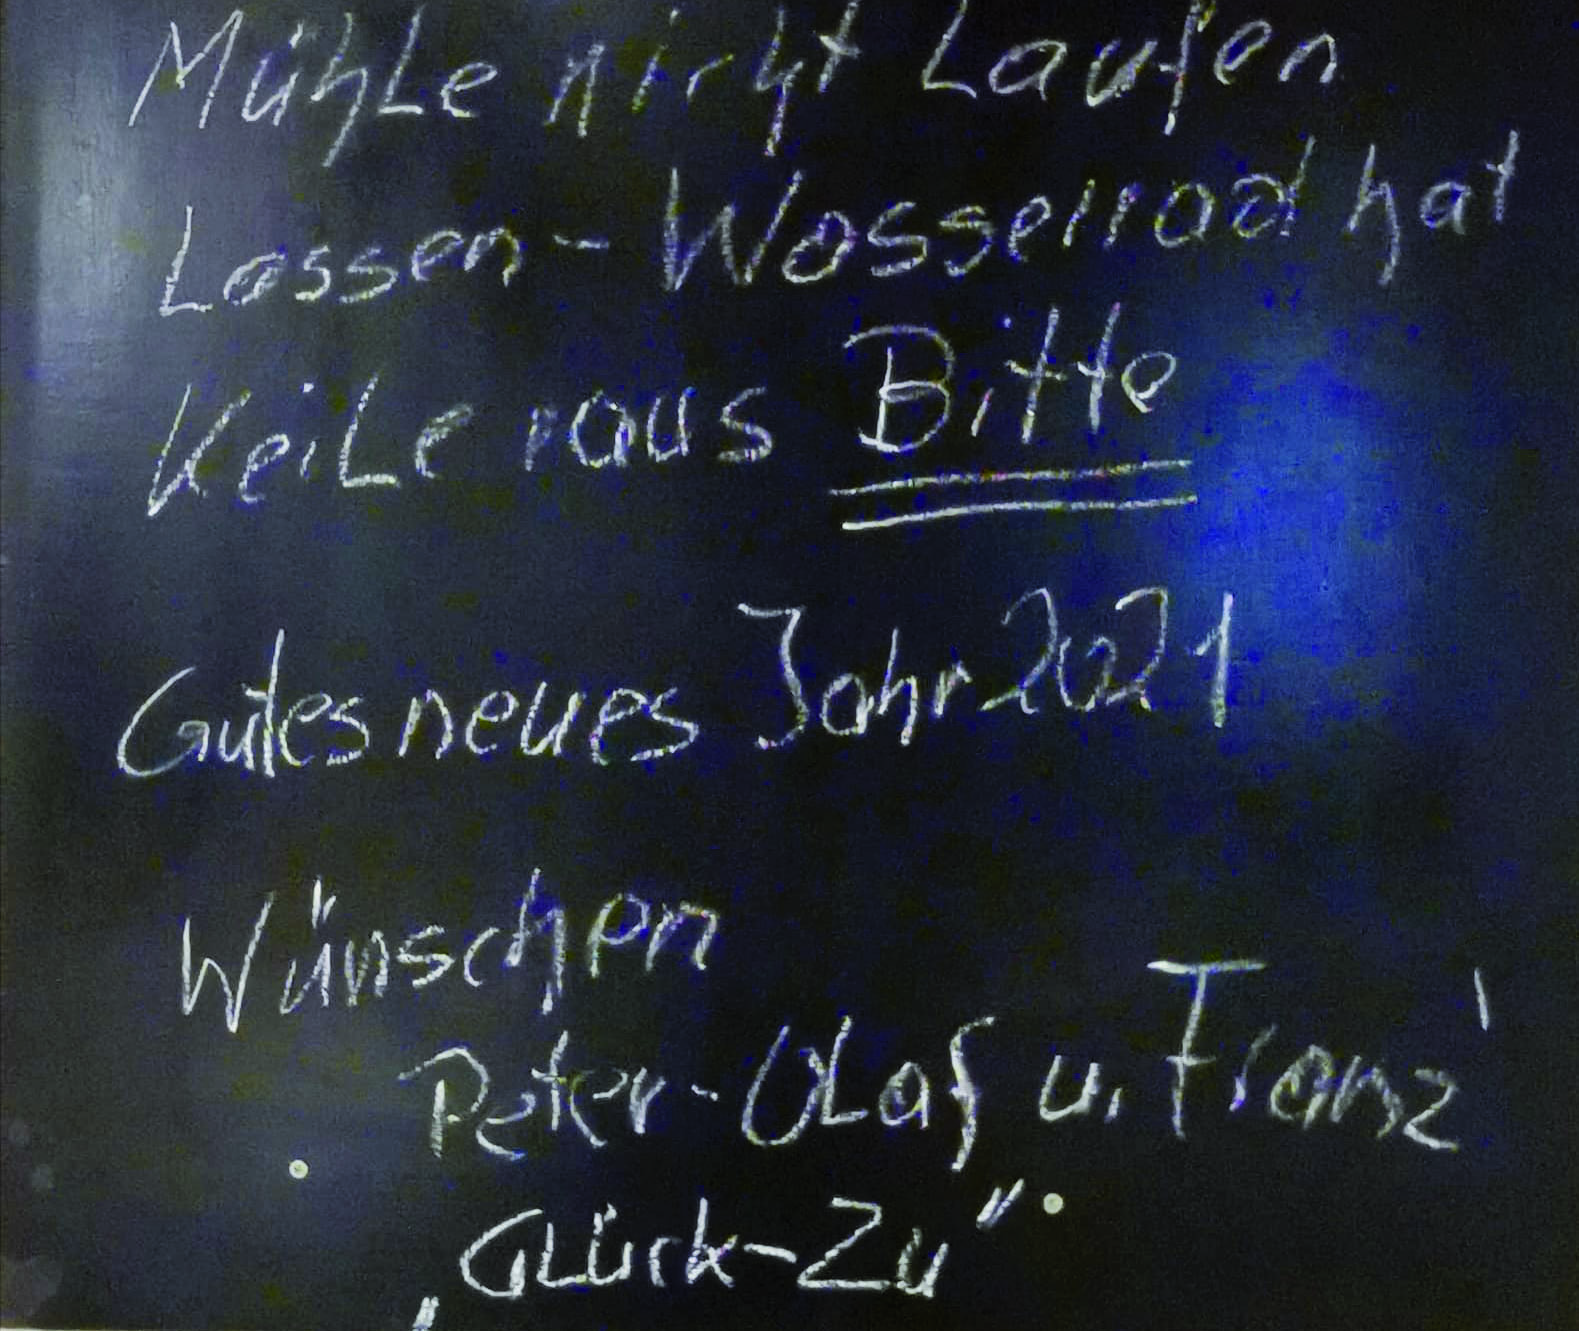 Mühle nicht Laufen
Lassen - Wasserrad hat
Keile raus Bitte
Gutes neues Jahr 2021
Wünschen
Peter-Olaf u. Franz
„Glück-Zu"